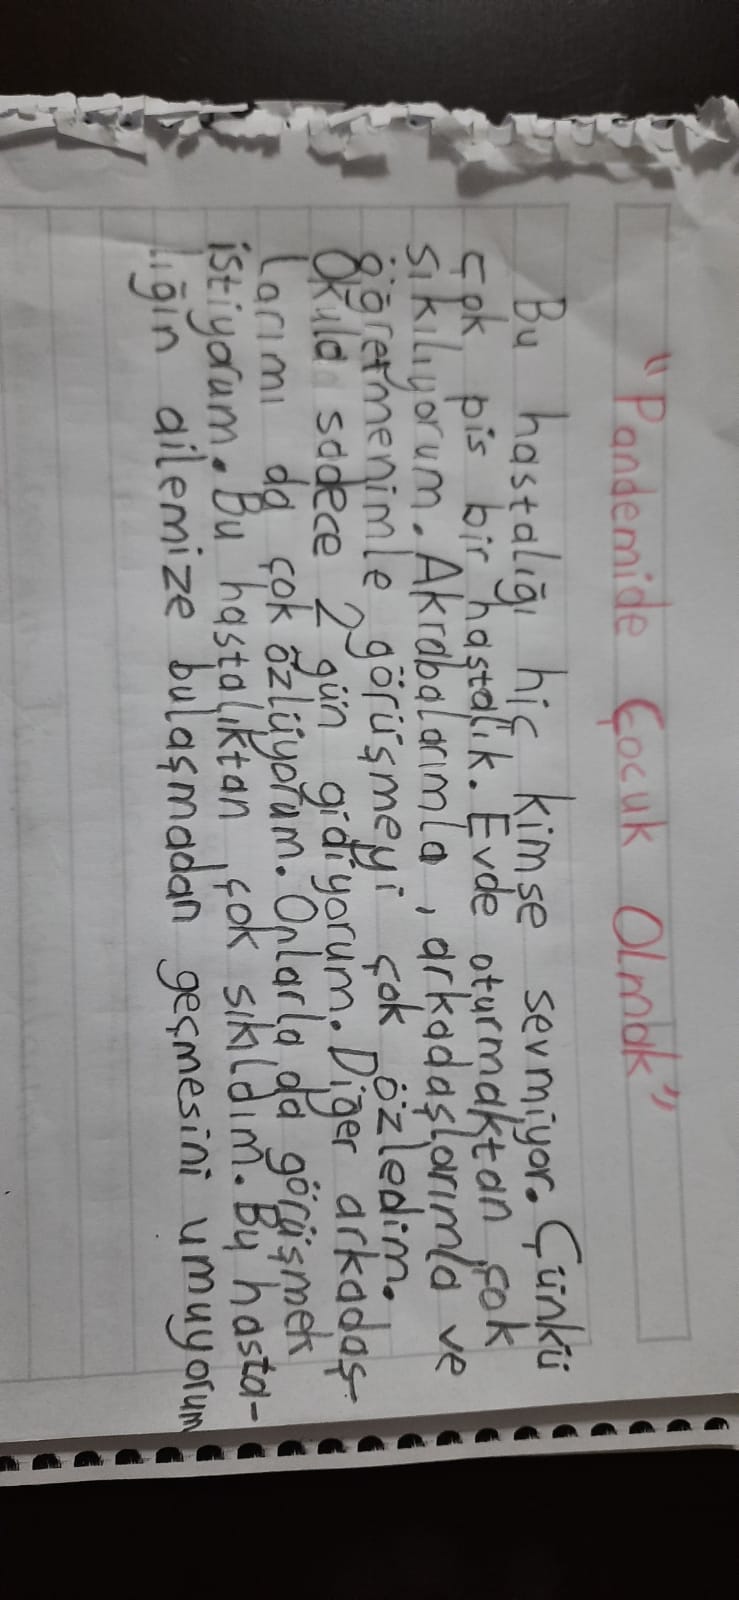 "Pandemide Çocuk Olmak"
Bu hastalığı hiç kimse sevmiyor. Çünkü
çok pis bir hastalık. Evde oturmaktan çok
sıkılıyorum. Akrabalarımla, arkadaşlarımla ve
öğretmenimle görüşmeyi çok özledim.
Okula sadece 2 gün gidiyorum. Diğer arkadaş-
larımı da çok özlüyorum. Onlarla da görüşmek
istiyorum. Bu hastalıktan çok sıkıldım. Bu hasta-
lığın ailemize bulaşmadan geçmesini umuyorum